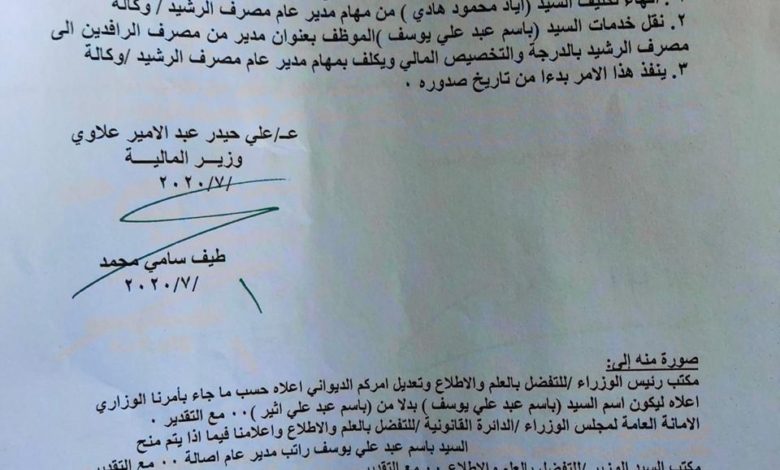 السيد (اياد محمود هادي ) من مهام مدير عام مصرف الرشيد / وكالة
٢. نقل خدمات السيد (باسم عبد علي يوسف )الموظف بعنوان مدير من مصرف الرافدين الى
مصرف الرشيد بالدرجة والتخصيص المالي ويكلف بمهام مدير عام مصرف الرشيد /وكالة
٣. ينفذ هذا الامر بدءا من تاريخ صدوره ٠
عـ/علي حيدر عبد الامير علاوي
وزيـــر الماليـــة
/٢٠٢٠/٧
طيف سامي محمد
/٢٠٢٠/٧
صورة منه إلى:
مكتب رئيس الوزراء /للتفضل بالعلم والاطلاع وتعديل امركم الديواني اعلاه حسب ما جاء بأمرنا الوزاري
اعلاه ليكون اسم السيد (باسم عبد علي يوسف ) بدلا من (باسم عبد علي اثير )٠٠ مع التقدير ٠
الامانة العامة لمجلس الوزراء /الدائرة القانونية /للتفضل بالعلم والاطلاع واعلامنا فيما اذا يتم منح
السيد باسم عبد علي يوسف راتب مدير عام اصالة ٠٠ مع التقدير
مكتب السيد الوزير /للتفضل بالعلم والاطلاع ٠٠ مع التقدير